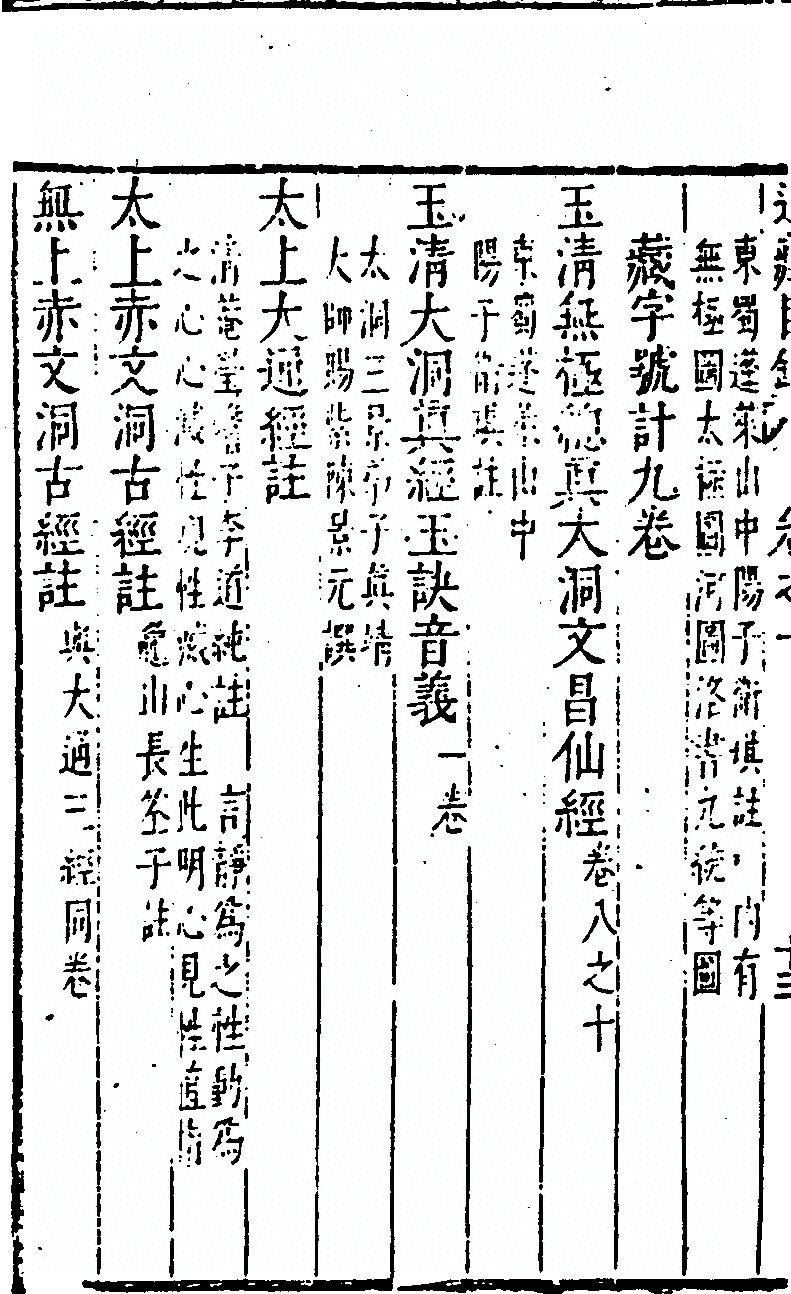 道藏目錄 卷之一 十三
東蜀蓬萊山中陽子衛琪註內有
無極圖太極圖河圖洛書九疑等圖
藏字號計九卷
玉清無極總真大洞文昌仙經卷八之十
東蜀蓬萊山中
陽子衛琪註
玉清大洞真經玉訣音義一卷
太洞三景弟子真靖
大師賜紫陳景元撰
太上大通經註
清菴瑩蟾子李道純註 言靜為之性動為
之心心滅性現性滅心生此明心見性直指
太上赤文洞古經註龜山長筌子註
無上赤文洞古經註與大通二經同卷